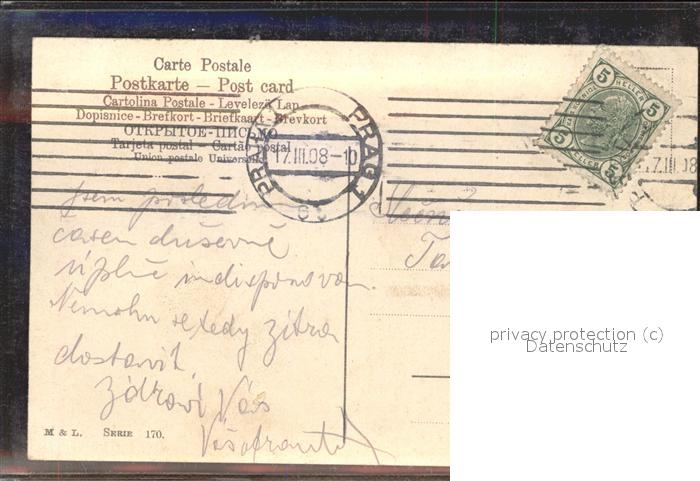 Carte Postale
Postkarte – Post card
Cartolina Postale - Levelező Lap
Dopisnice - Brefkort - Briefkaart - Brevkort
ОТКРЫТОЕ-ПИСЬМО
Tarjeta postal - Cartão postal
Union postale Universelle
PRAHA 1 PRAG 1
17.III.08-10
5 HELLER 5
5 HELLER 5
17.III.08
Jsem poslední
časem duševně
úplně indisponován.
Nemohu se tedy zítra
dostavit.
Zdraví Vás
Váš
M & L. SERIE 170.
privacy protection (c)
Datenschutz